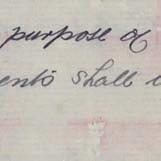 purpose of
ents shall